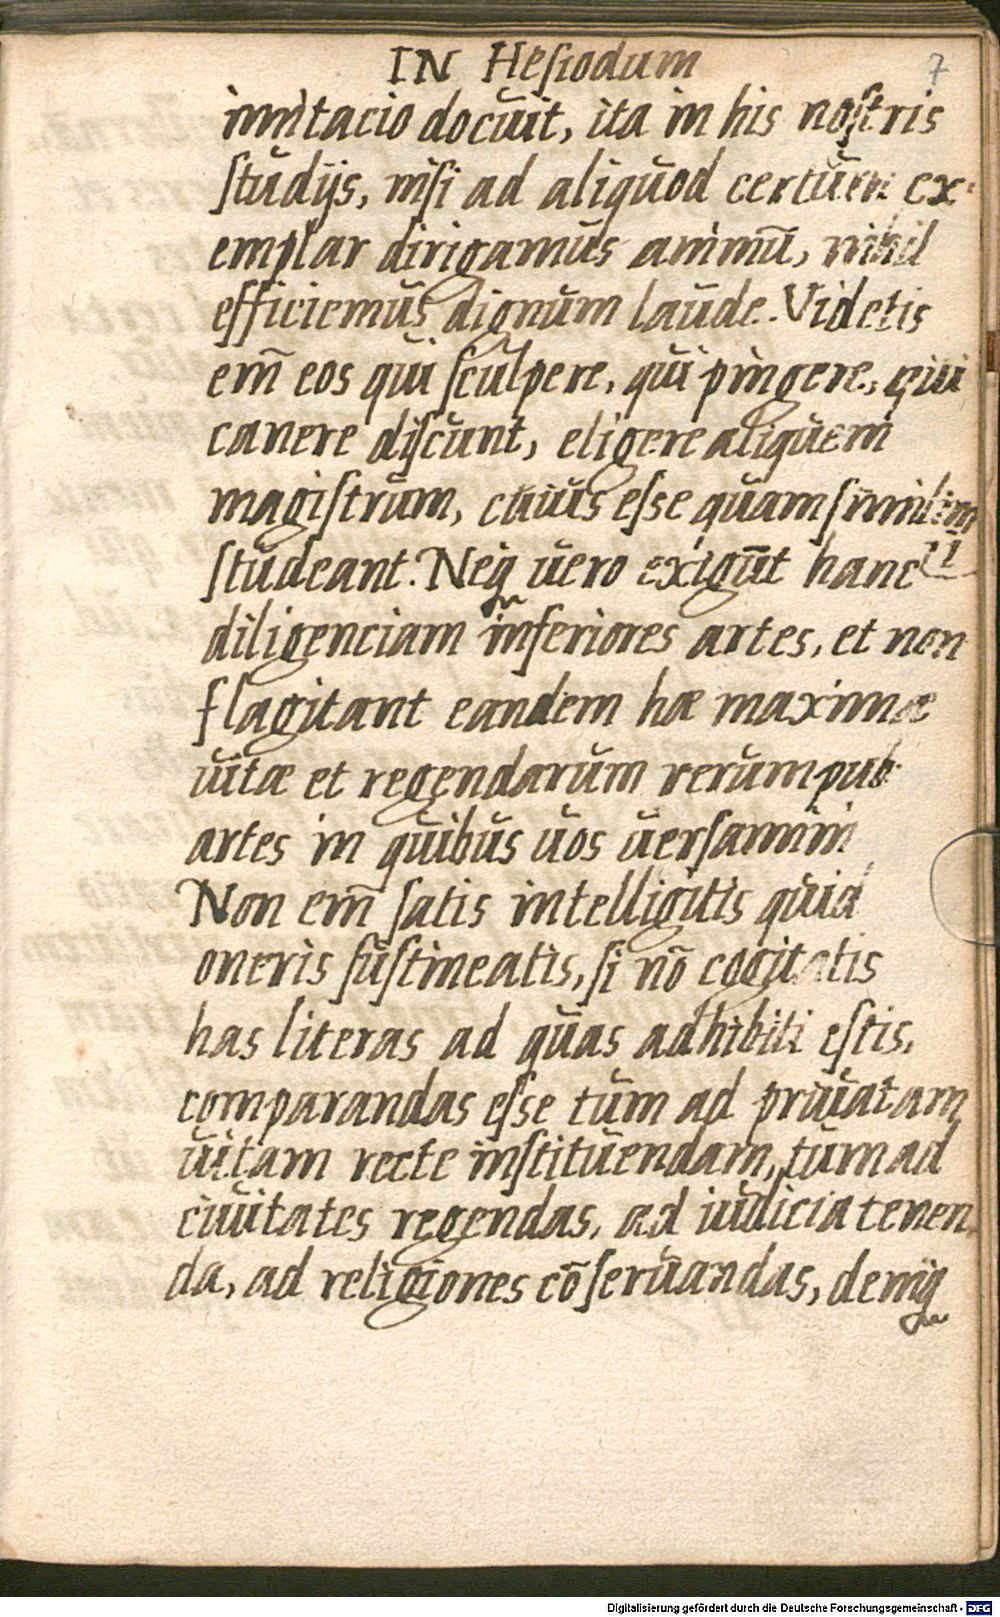 IN Hesiodum
7
imitacio docuit, ita in his nostris
studijs, nisi ad aliquod certum ex-
emplar dirigamus animū, nihil
efficiemus dignum laude. Videtis
em̄ eos qui sculpere, qui pingere, qui
canere discunt, eligere aliquem
magistrum, cuius esse quam simillimi
studeant. Neq̨ uero exigūt hanc
diligenciam inferiores artes, et non
flagitant eandem hæ maximæ
uitæ et regendarum rerum pub.
artes in quibus uos uersamini
Non em̄ satis intelligitis quid
oneris sustineatis, si nō cogitatis
has literas ad quas adhibiti estis,
comparandas esse tum ad priuatam
uitam recte instituendam, tum ad
ciuitates regendas, ad iudicia tenen
da, ad religiones cōseruandas, deniq̨
Digitalisierung gefördert durch die Deutsche Forschungsgemeinschaft - DFG